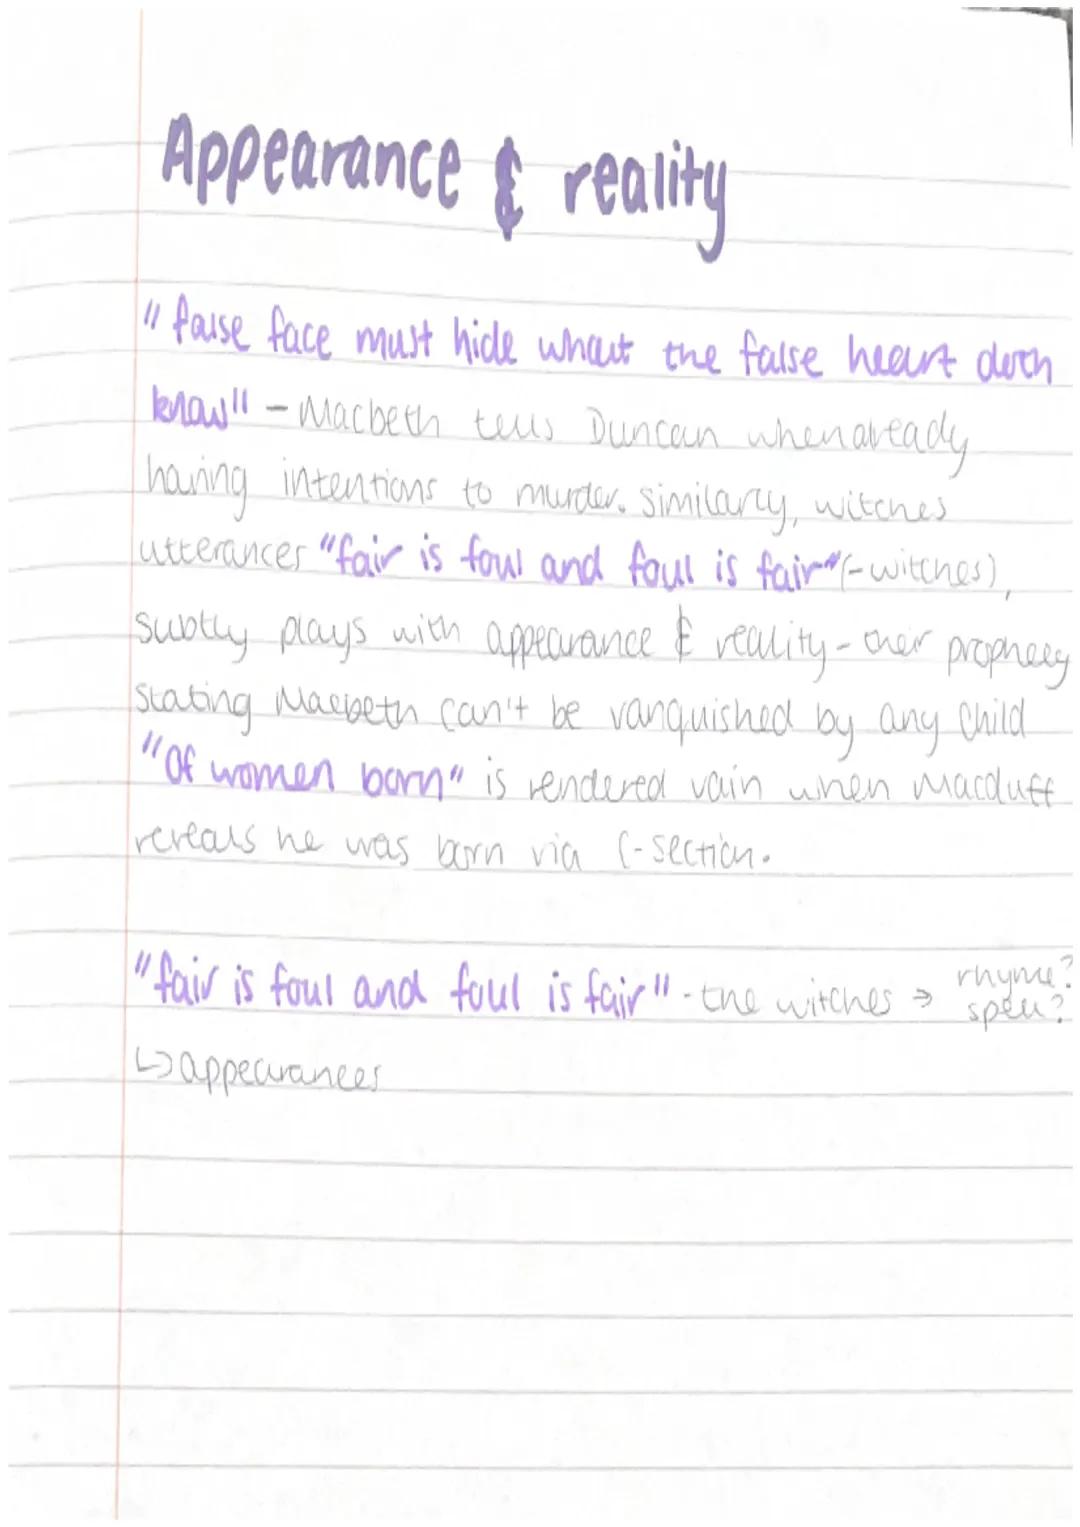 Appearance & reality
"false face must hide what the false heart doth
know" - Macbeth tells Duncan when already
having intentions to murder. Similarly, witches
utterances "fair is foul and foul is fair" (-witches),
subtly plays with appearance & reality - their prophecy
stating Macbeth can't be vanquished by any child
"Of women born" is rendered vain when Macduff
reveals he was born via C-section.
"fair is foul and foul is fair" - the witches → rhyme?
spell?
↳ appearances